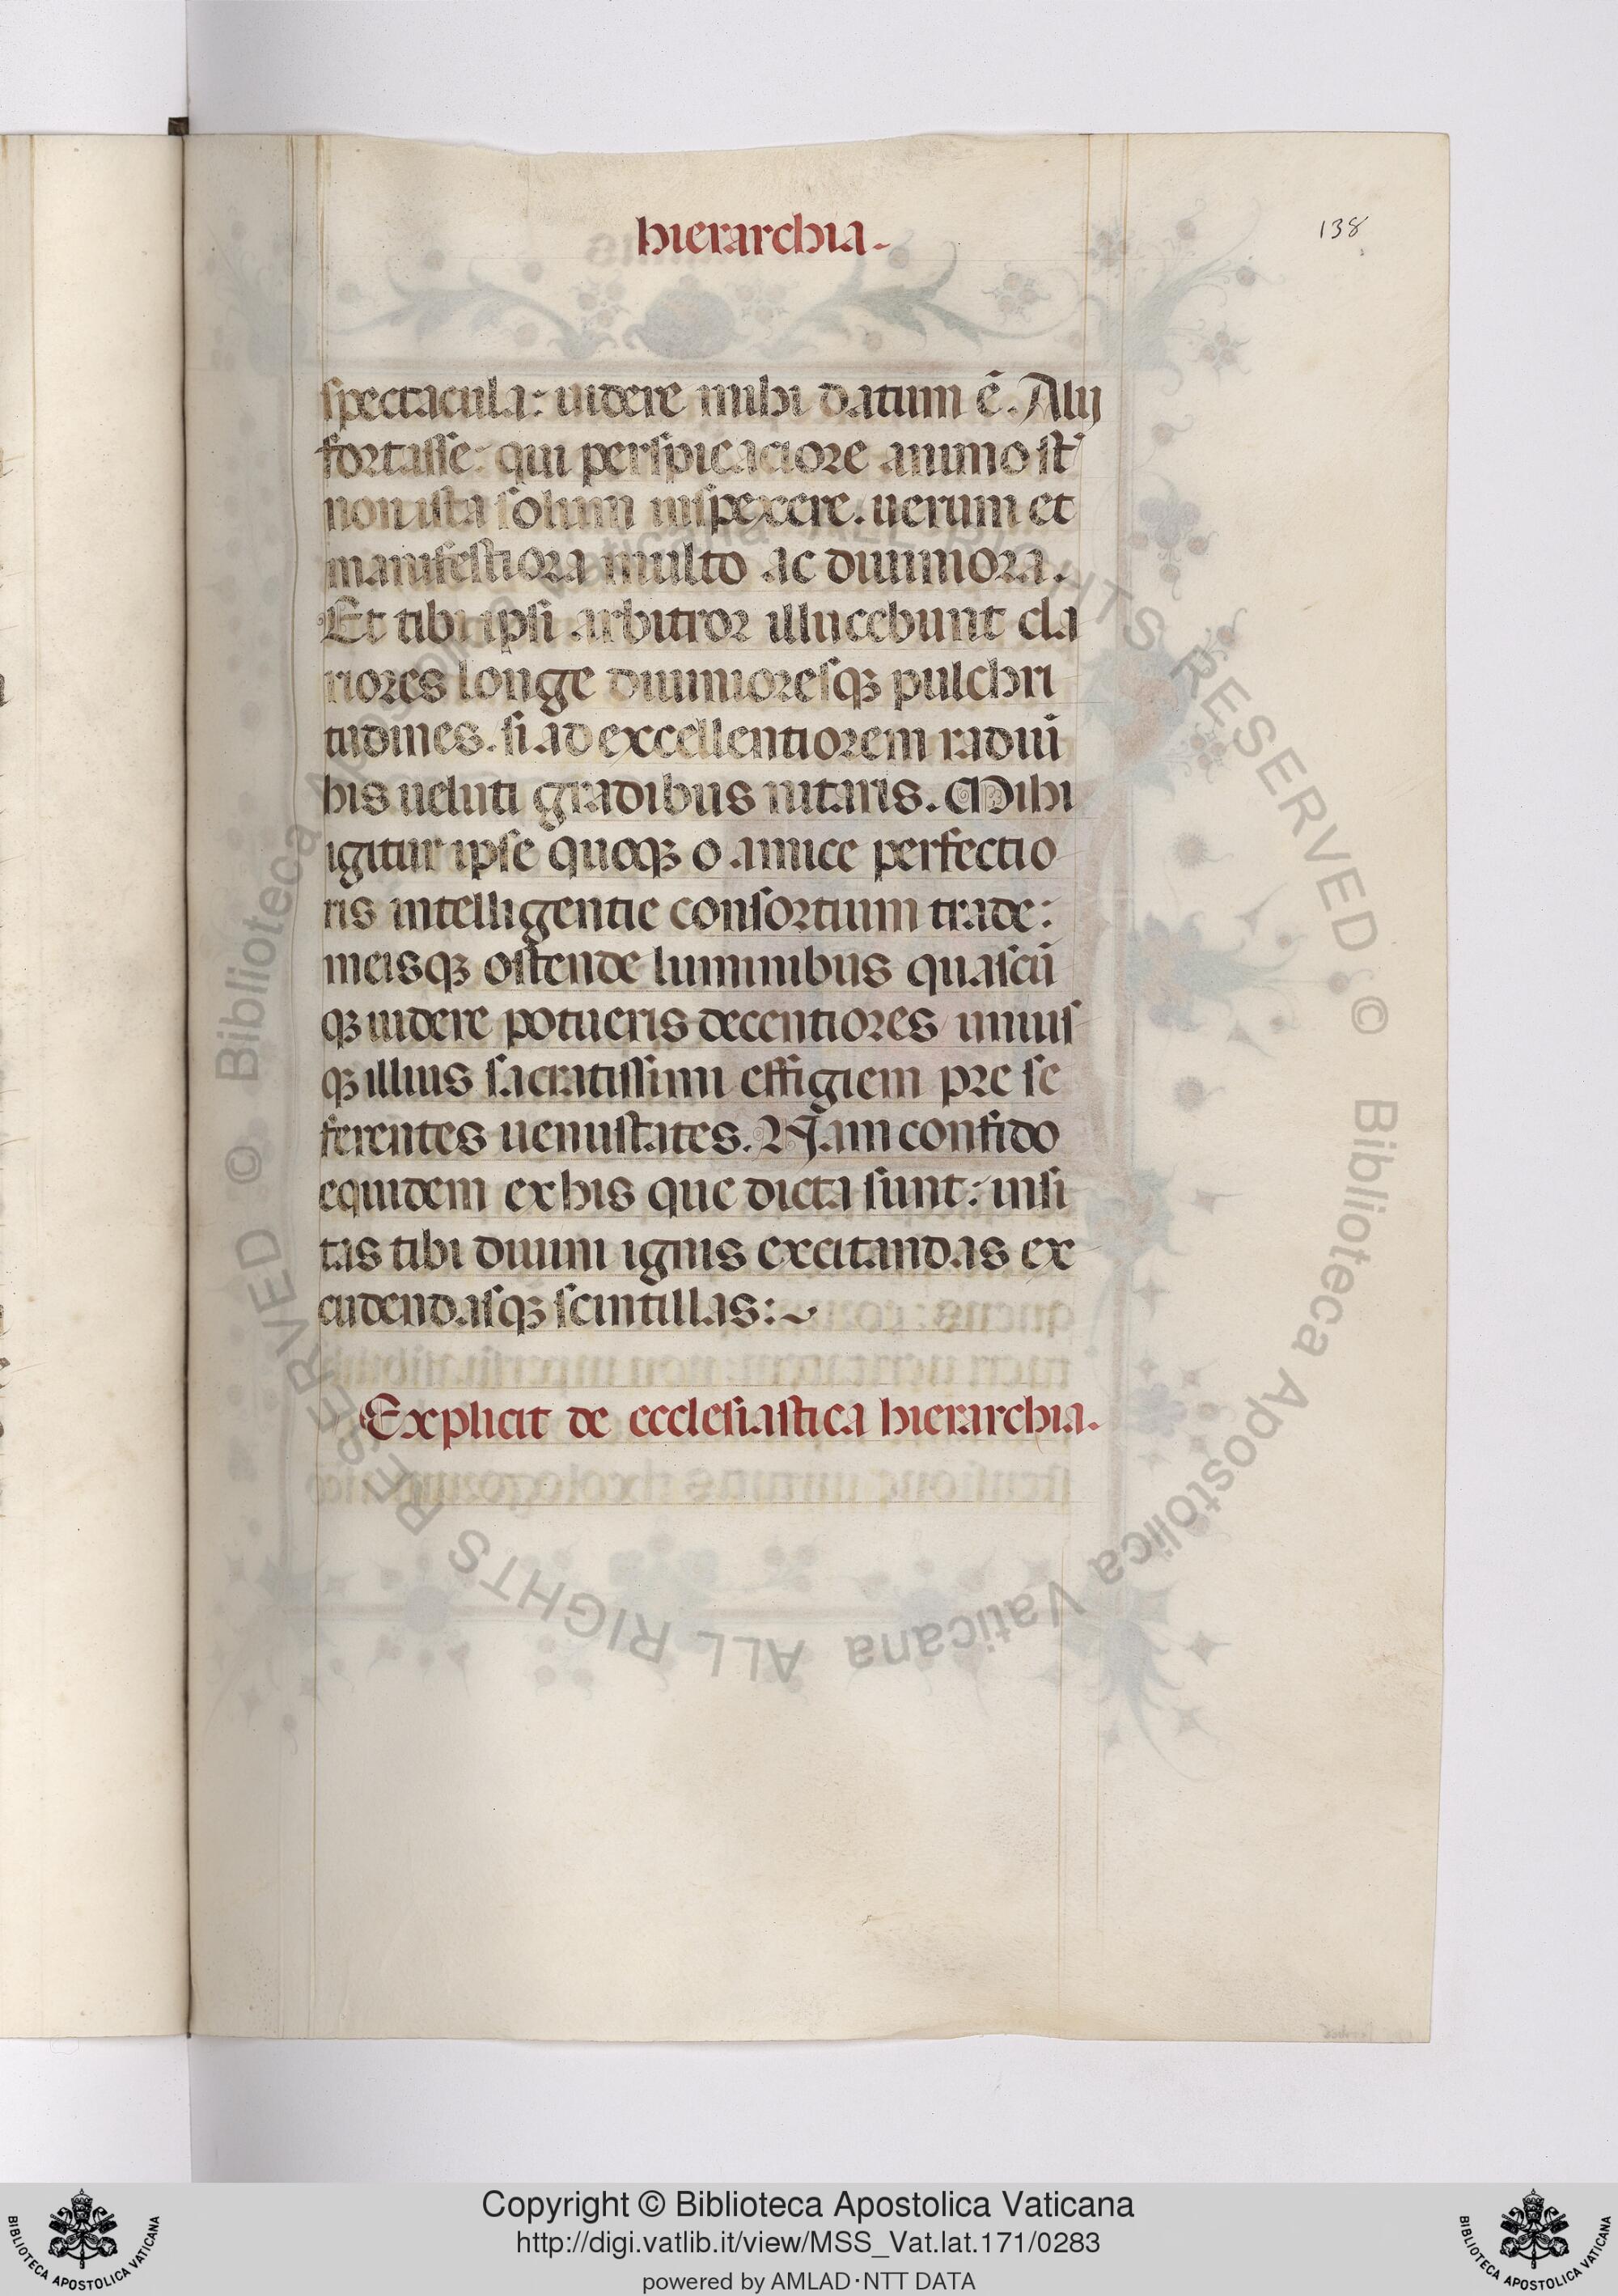 hierarchia.
138
spectacula: uidere mihi datum ē. Alij
fortasse: qui perspicaciore animo st̄
non ista solum inspexere. uerum et
manifestiora multo ac diuiniora.
Et tibi ipsi arbitror illucebunt cla
riores longe diuinioresqꝫ pulchri
tudines. si ad excellentiorem radiū
his ueluti gradibus nitaris. Mihi
igitur ipse quoqꝫ o amice perfectio
ris intelligentie consortium trade:
meisqꝫ ostende luminibus quascū
qꝫ uidere potueris decentiores / unius
qꝫ illius sacratissimi effigiem pre se
ferentes uenustates. Nam confido
equidem ex his que dicta sunt: insi
tas tibi diuini ignis excitandas ex
cudendasqꝫ scintillas:~
Explicit de ecclesiastica hierarchia.
© Biblioteca Apostolica Vaticana ALL RIGHTS RESERVED © Biblioteca Apostolica Vaticana ALL RIGHTS RESERVED
Copyright © Biblioteca Apostolica Vaticana
http://digi.vatlib.it/view/MSS_Vat.lat.171/0283
powered by AMLAD·NTT DATA
BIBLIOTECA APOSTOLICA VATICANA
BIBLIOTECA APOSTOLICA VATICANA